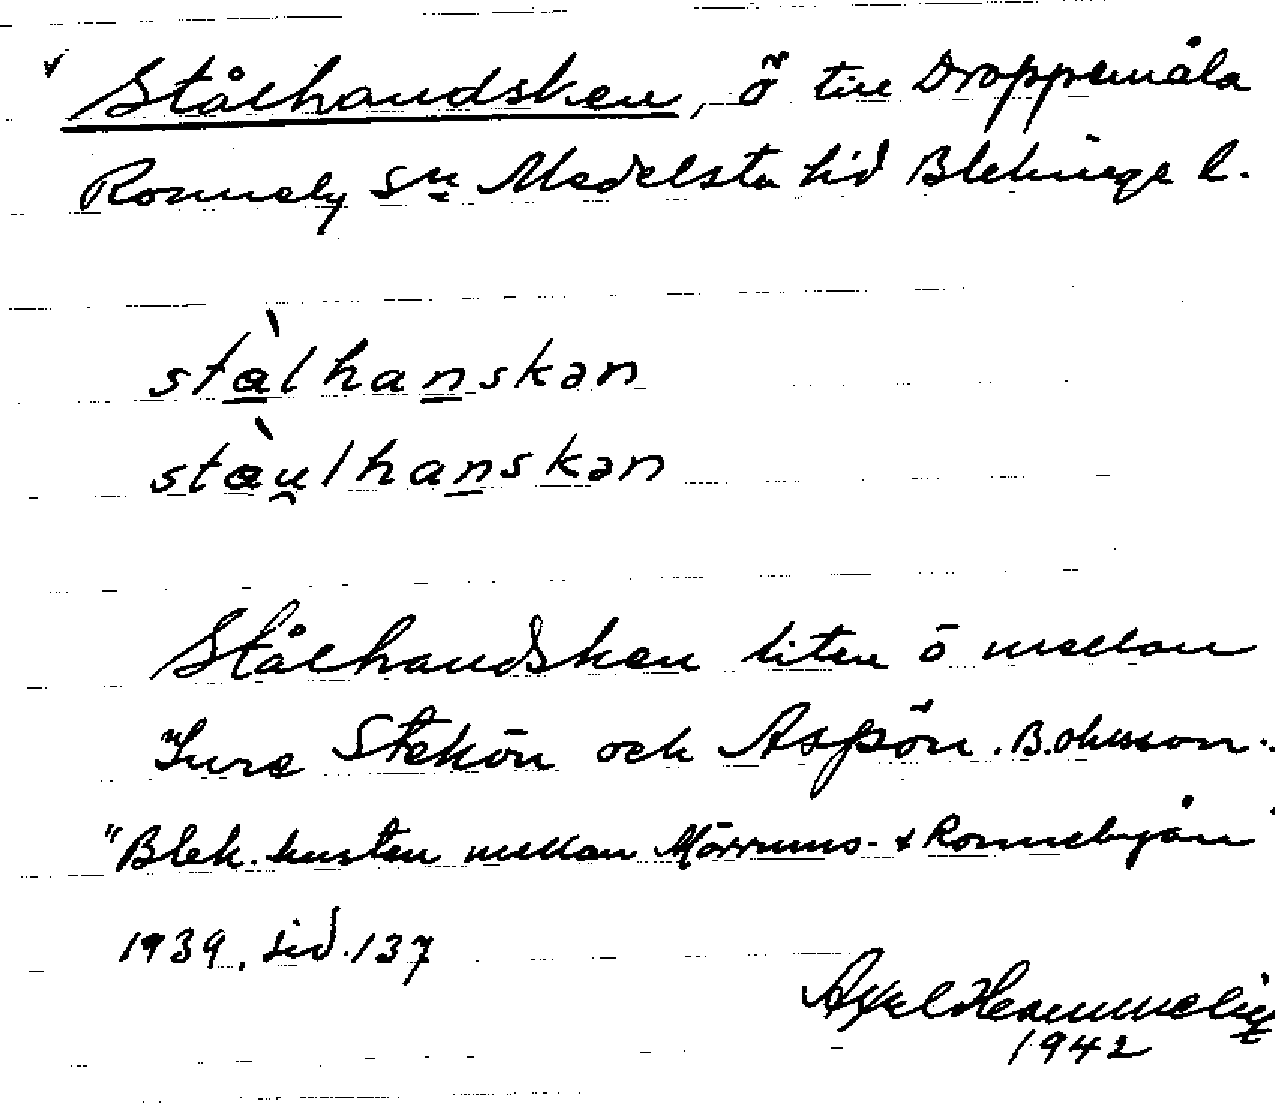 Stålhandsken, ö till Droppemåla
Ronneby sn Medelsta hd Blekinge l.
stàlhanskən
stàu̯lhanskən
Stålhandsken liten ö mellan
Yttre Stekön och Aspön. B. Ohlsson.
"Blek. kusten mellan Mörrums- & Ronnebyån"
1939, sid. 137
Axel
1942